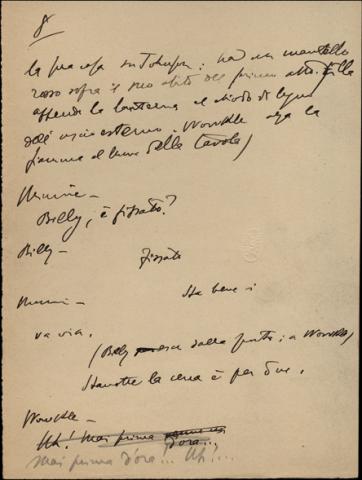 8
la sua casa su Johnson: ha un mantello
rosso sopra il suo abito del primo atto. Ella
appende la lanterna al chiodo di legno
dell'uscio esterno. Wowkle alza la
fiamma al lume della tavola)
Minnie —
Billy, è fissato?
Billy —
Fissato
Minnie —
Sta bene
va via.
(Billy esce dalla porta; a Wowkle)
Stanotte la cena è per due.
Wowkle —
Uh! Mai prima
d'ora...
Mai prima d'ora!... Uh!...